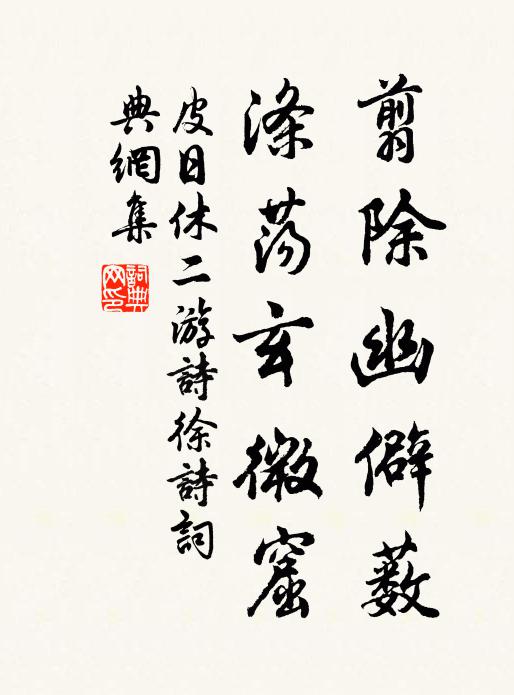 翦除幽僻藪
滌荡玄微窟
皮日休二游詩徐詩詞
典網集
詞典网印